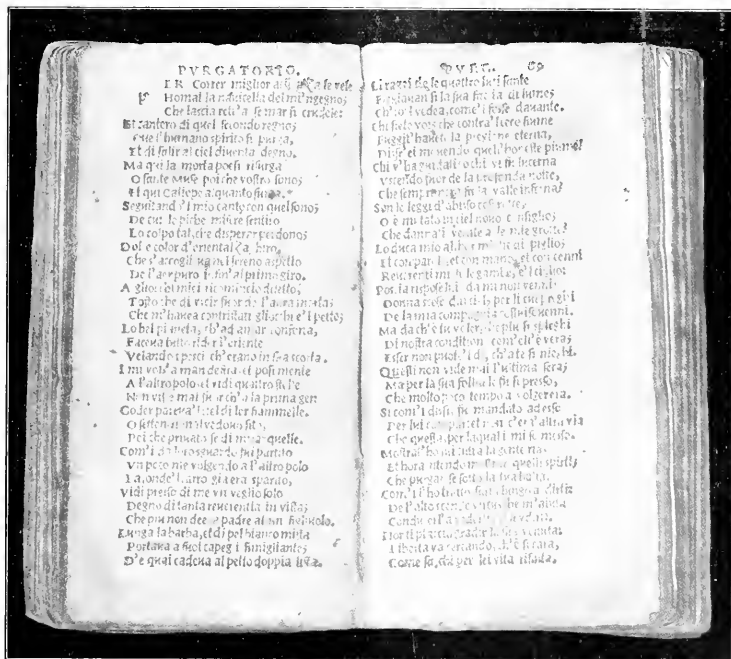 PVRGATORIO.
ER Correr miglior alza le vele
P Homai la nauicella del mi'ngegno;
Che lascia a se mar si crudele:
Et cantero di quel secondo regno;
Oue l'humano spirito si purga,
Et di salir al ciel diuenta degno.
Ma qui la morta poesi risurga
O sante Muse poi che vostro sono;
Et qui Caliope alquanto surga.
Seguitando'l mio canto con quel sono;
De cui le piche misere sentiro
Lo colpo tal, che disperar perdono;
Dolce color d'oriental Zaphiro,
Che s'accoglieua nel sereno aspetto
De l'aer puro infin'al primo giro.
A gliocchi miei ricomincio diletto;
Tosto che di vscir fuor de l'aura morta;
Che m'hauea contristati gliocchi e'l petto;
Lo bel pianeta, ch'ad amar conforta,
Facea tutto rider l'oriente
Velando i pesci ch'erano in sua scorta.
I mi volsi a man destra, et posi mente
A l'altro polo: et vidi quattro stelle
Non viste mai fuor ch'a la prima gente
Goder pareua'l ciel di lor fiammelle.
O settentrional vedouo sito,
Poi che priuato se di mirar quelle.
Com'i da loro sguardo fui partito
Vn poco me volgendo a l'altro polo
La, onde'l carro gia era sparito,
Vidi presso di me vn veglio solo
Degno di tanta reuerentia in vista;
Che piu non dee a padre alcun figliuolo.
Lunga la barba, et di pel bianco mista
Portaua a suoi capegli simigliante;
De quai cadeua al petto doppia lista.
PVRG. 69
Li raggi de le quattro luci sante
Fregiauan si la sua faccia di lume;
Ch'io'l vedea, come'l sole dauante.
Chi siete voi; che contra'l cieco fiume
Fuggit'hauete la prigione eterna,
Diss'ei mouendo quell'honeste piume?
Chi v'ha guidati: o chi vi fu lucerna
Vscendo fuor de la profonda notte,
Che sempre nera fa la valle inferna?
Son le leggi d'abisso cosi rotte,
O è mutato in ciel nouo consiglio;
Che dannati venite a le mie grotte?
Lo duca mio allhor mi die di piglio;
Et con parole, et con mano, et con cenni
Reuerenti mi fe le gambe, e'l ciglio:
Poscia rispose lui: da me non venni:
Donna scese dal ciel; per li cui prieghi
De la mia compagnia costui souenni.
Ma da ch'è tuo voler, che piu si spieghi
Di nostra condition com'ell'è vera;
Esser non puote'l mio, ch'a te si nieghi.
Questi non vide mai l'vltima sera;
Ma per la sua follia le fu si presso,
Che molto poco tempo a volger era.
Si com'i dissi, fui mandato ad esso
Per lui campare; et non c'era altra via
Che questa, per laqual i mi so messo.
Mostrat'ho lui tutta la gente ria:
Et hora intendo mostrar quelli spirti;
Che purgan se sotto la tua balia.
Com'i l'ho tratto, saria lungo a dirti:
De l'alto scende virtu; che m'aiuta
Conducerlo a vederti, et a vdirti.
Hor ti piaccia gradir la sua venuta:
Liberta va cercando, ch'è si cara,
Come sa, chi per lei vita rifiuta.